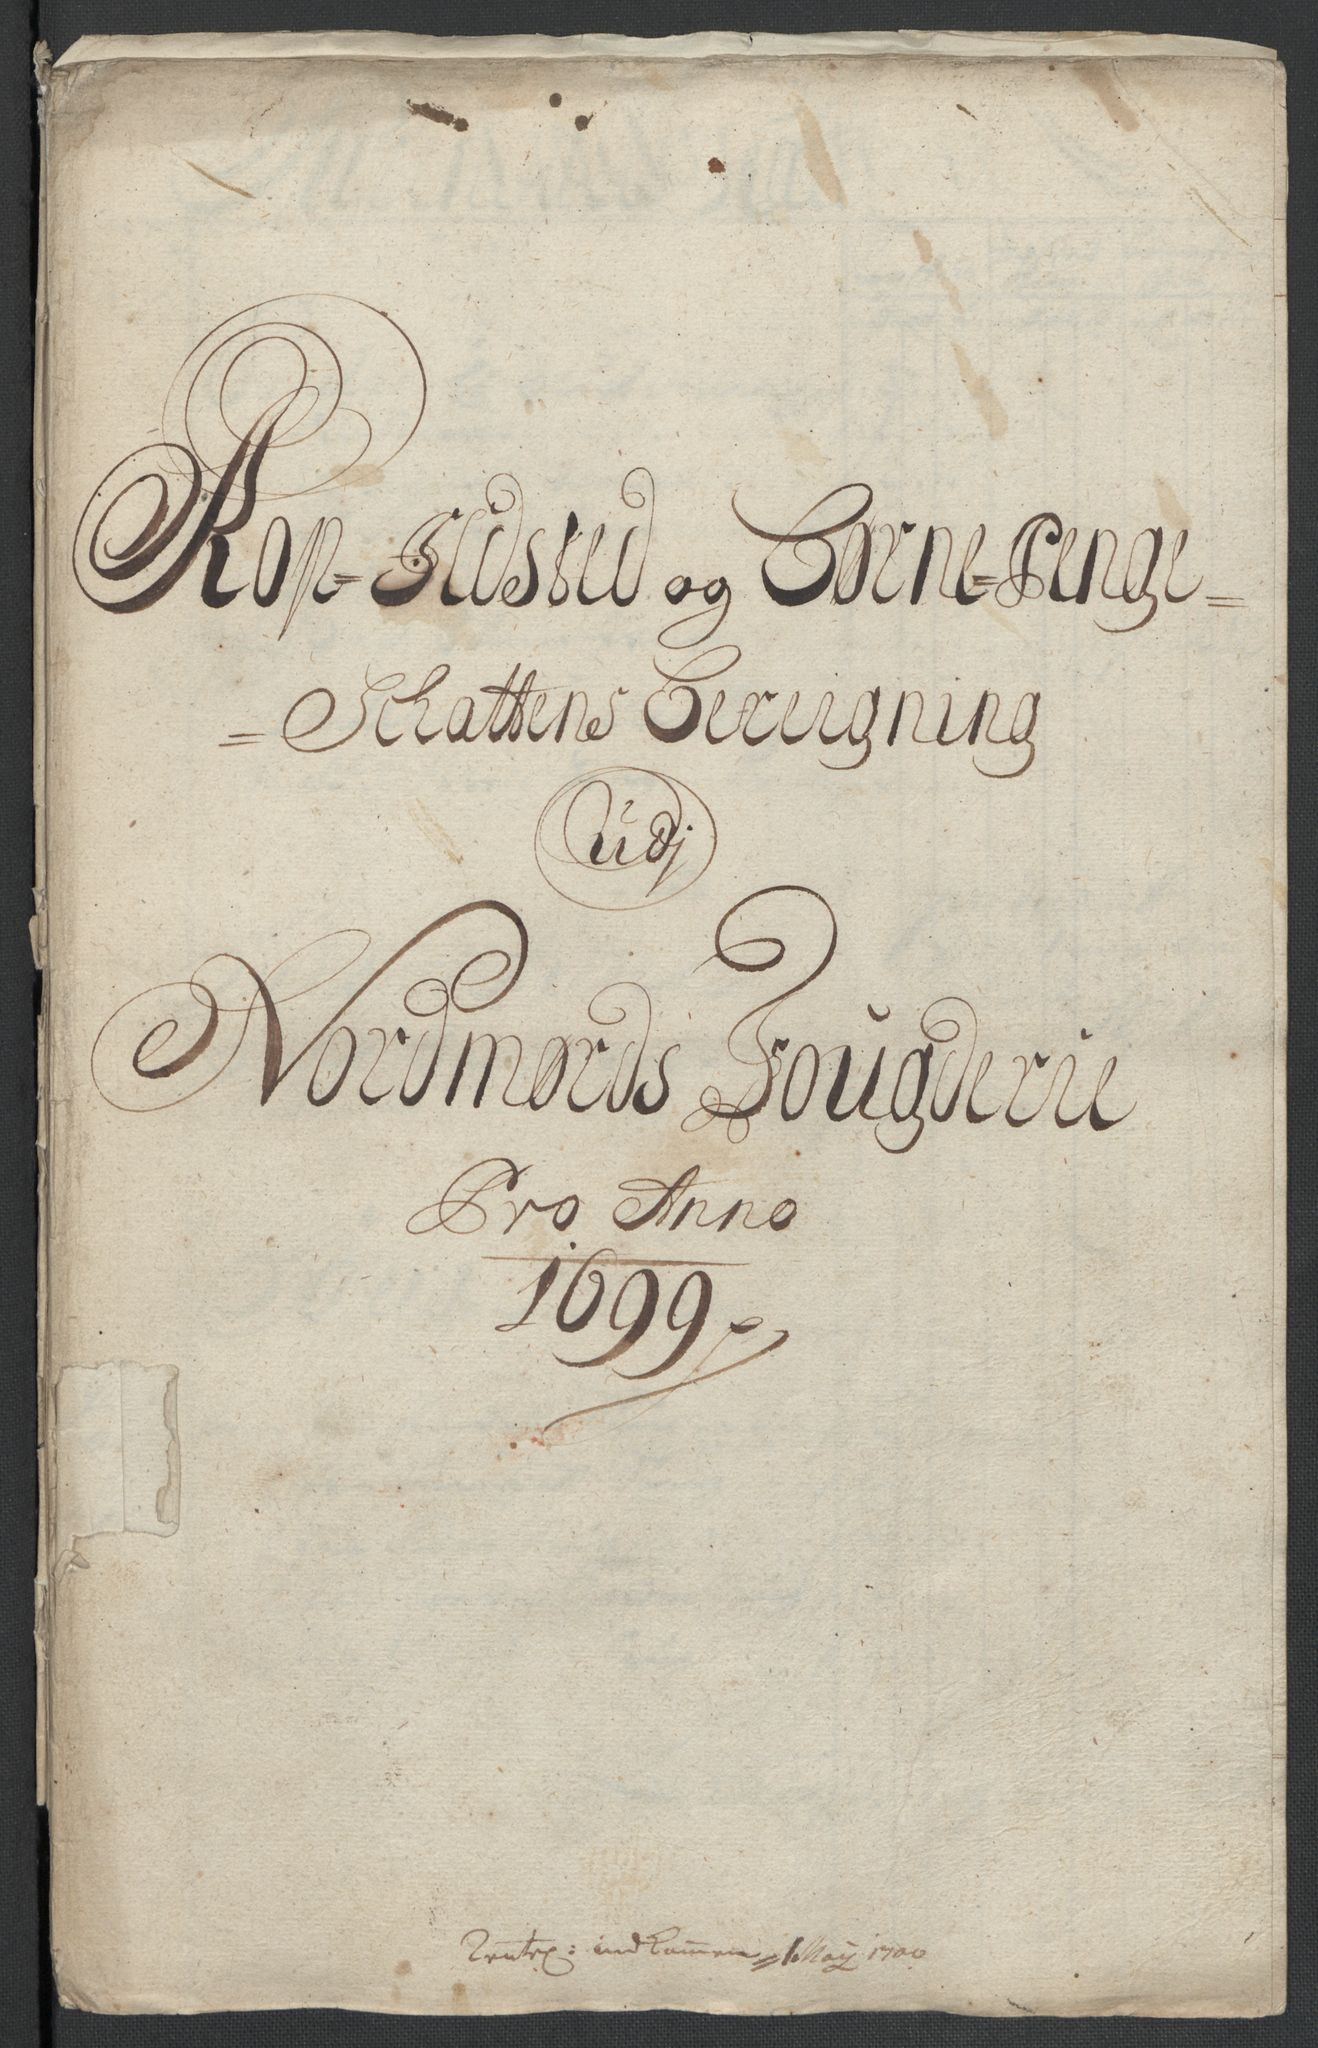 Kop= Ildsted og Horne=Penge=
=Schattens Bereigning
Udj
Nordmørds Fougderie
Pro Anno
1699
ind kommen 1 May 1700